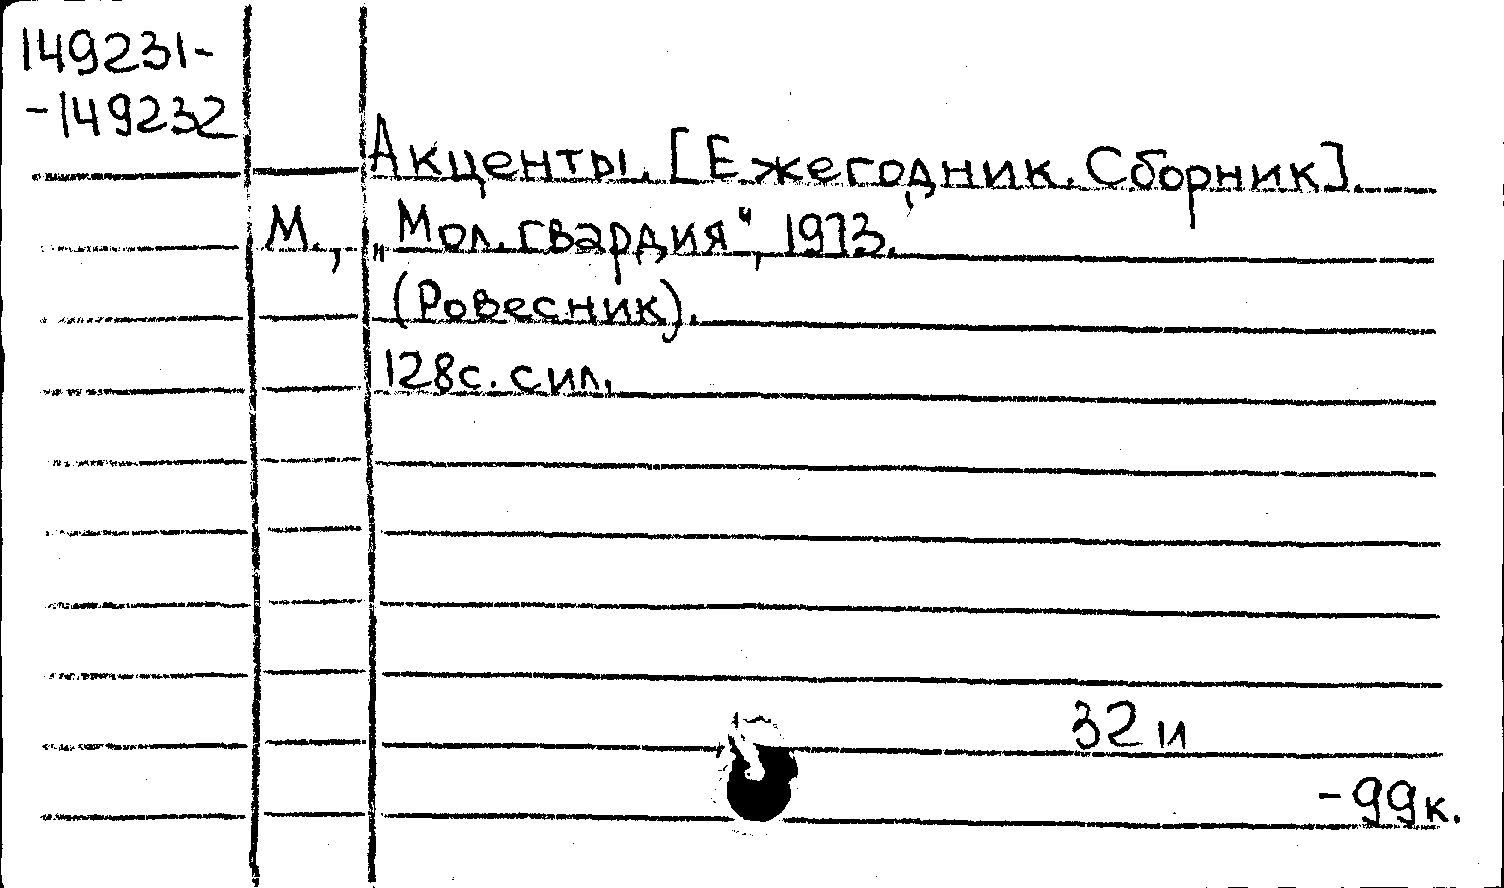 149231-
-149232
Акценты. [Ежегодник. Сборник].
М., „Мол. гвардия“, 1973.
(Ровесник).
128с. с ил.
32 и
-99к.